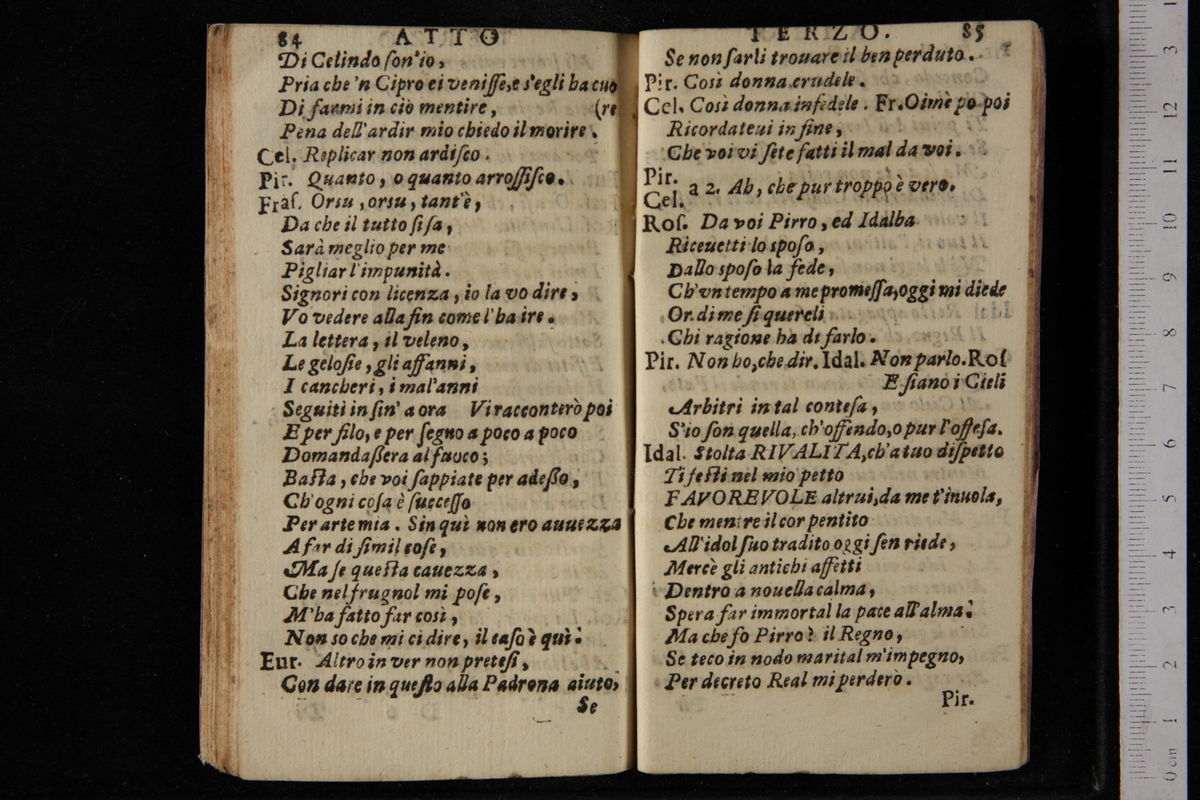 84 ATTO
Di Celindo ſon'io,
Pria che 'n Cipro ei veniſſe,e s'egli ha cuo
Di farmi in ciò mentire, (re
Pena dell'ardir mio chiedo il morire.
Cel. Replicar non ardiſco.
Pir. Quanto, o quanto arroſſiſco.
Fraſ. Orsu, orsu, tant'è,
Da che il tutto ſi ſa,
Sarà meglio per me
Pigliar l'impunità.
Signori con licenza, io la vo dire,
Vo vedere alla fin come l'ha ire.
La lettera, il veleno,
Le geloſie, gli affanni,
I cancheri, i mal'anni
Seguiti in ſin' a ora Vi racconterò poi
E per filo, e per ſegno a poco a poco
Domandaſſera al fuoco;
Baſta, che voi ſappiate per adeſſo,
Ch'ogni coſa è ſucceſſo
Per arte mia. Sin quì non ero auuezza
A far di ſimil coſe,
Ma ſe queſta cauezza,
Che nel frugnol mi poſe,
M'ha fatto far così,
Non so che mi ci dire, il caſo è quì.
Eur. Altro in ver non preteſi,
Con dare in queſto alla Padrona aiuto,
Se
TERZO. 85
Se non farli trouare il ben perduto.
Pir. Così donna crudele.
Cel. Così donna infedele. Fr.Oimè po poi
Ricordateui in fine,
Che voi vi ſete fatti il mal da voi.
Pir.
Cel. a 2. Ah, che pur troppo è vero.
Roſ. Da voi Pirro, ed Idalba
Riceuetti lo spoſo,
Dallo spoſo la fede,
Ch'vn tempo a me promeſſa,oggi mi diede
Or di me ſi quereli
Chi ragione ha di farlo.
Pir. Non ho,che dir. Idal. Non parlo.Roſ
E ſiano i Cieli
Arbitri in tal conteſa,
S'io ſon quella, ch'offendo,o pur l'offeſa.
Idal. Stolta RIVALITA,ch'a tuo diſpetto
Ti feſti nel mio petto
FAVOREVOLE altrui,da me t'inuola,
Che mentre il cor pentito
All'idol ſuo tradito oggi ſen riede,
Mercè gli antichi affetti
Dentro a nouella calma,
Spera far immortal la pace all'alma.
Ma che fo Pirro? il Regno,
Se teco in nodo marital m'impegno,
Per decreto Real mi perderò.
Pir.